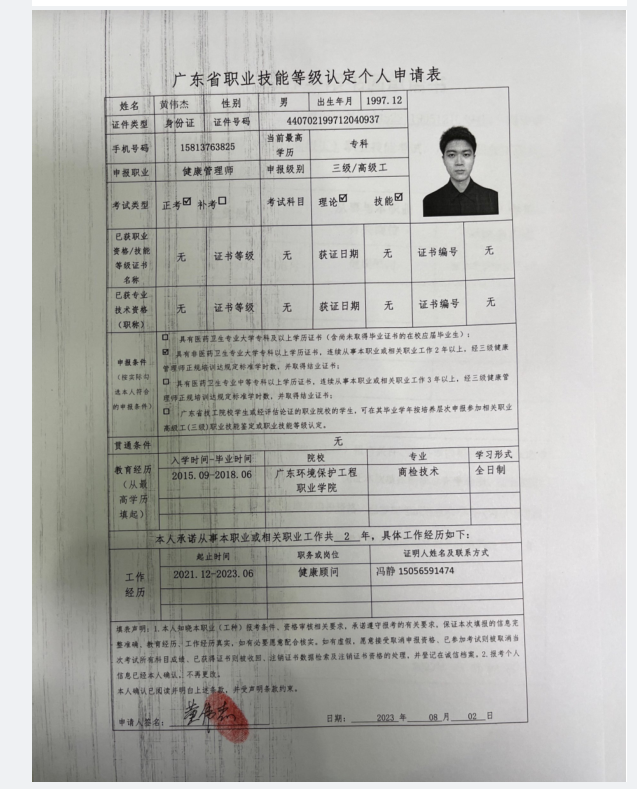 广东省职业技能等级认定个人申请表
姓名 黄伟杰 性别 男 出生年月 1997.12
证件类型 身份证 证件号码 440702199712040937
手机号码 15813763825 当前最高学历 专科
申报职业 健康管理师 申报级别 三级/高级工
考试类型 正考☑ 补考☐ 考试科目 理论☑ 技能☑
已获职业资格/技能等级证书名称 无 证书等级 无 获证日期 无 证书编号 无
已获专业技术资格(职称) 无 证书等级 无 获证日期 无 证书编号 无
申报条件(按实际勾选本人符合的申报条件)
☐ 具有医药卫生专业大学专科及以上学历证书(含尚未取得毕业证书的在校应届毕业生);
☑ 具有非医药卫生专业大学专科以上学历证书,连续从事本职业或相关职业工作2年以上,经三级健康
管理师正规培训达规定标准学时数,并取得结业证书;
☐ 具有医药卫生专业中等专科以上学历证书,连续从事本职业或相关职业工作3年以上,经三级健康管
理师正规培训达规定标准学时数,并取得结业证书;
☐ 广东省技工院校学生或经评估论证的职业院校的学生,可在其毕业学年按培养层次申报参加相关职业
高级工(三级)职业技能鉴定或职业技能等级认定。
贯通条件 无
教育经历(从最高学历填起) 入学时间-毕业时间 院校 专业 学习形式
2015.09-2018.06 广东环境保护工程职业学院 商检技术 全日制
本人承诺从事本职业或相关职业工作共 2 年,具体工作经历如下:
工作经历 起止时间 职务或岗位 证明人姓名及联系方式
2021.12-2023.06 健康顾问 冯静 15056591474
填表声明:1.本人知晓本职业(工种)报考条件、资格审核相关要求,承诺遵守报考的有关要求,保证本次填报的信息完
整准确,教育经历、工作经历真实,如有必要愿意配合核实。如有虚假,愿意接受取消申报资格、已参加考试则被取消当
次考试所有科目成绩、已获得证书则被收回、注销证书数据检索及注销证书资格的处理,并登记在诚信档案。2.报考个人
信息已经本人确认,不再更改。
本人确认已阅读并明白上述条款,并受声明条款约束。
申请人签名: 黄伟杰 日期: 2023 年 08 月 02 日